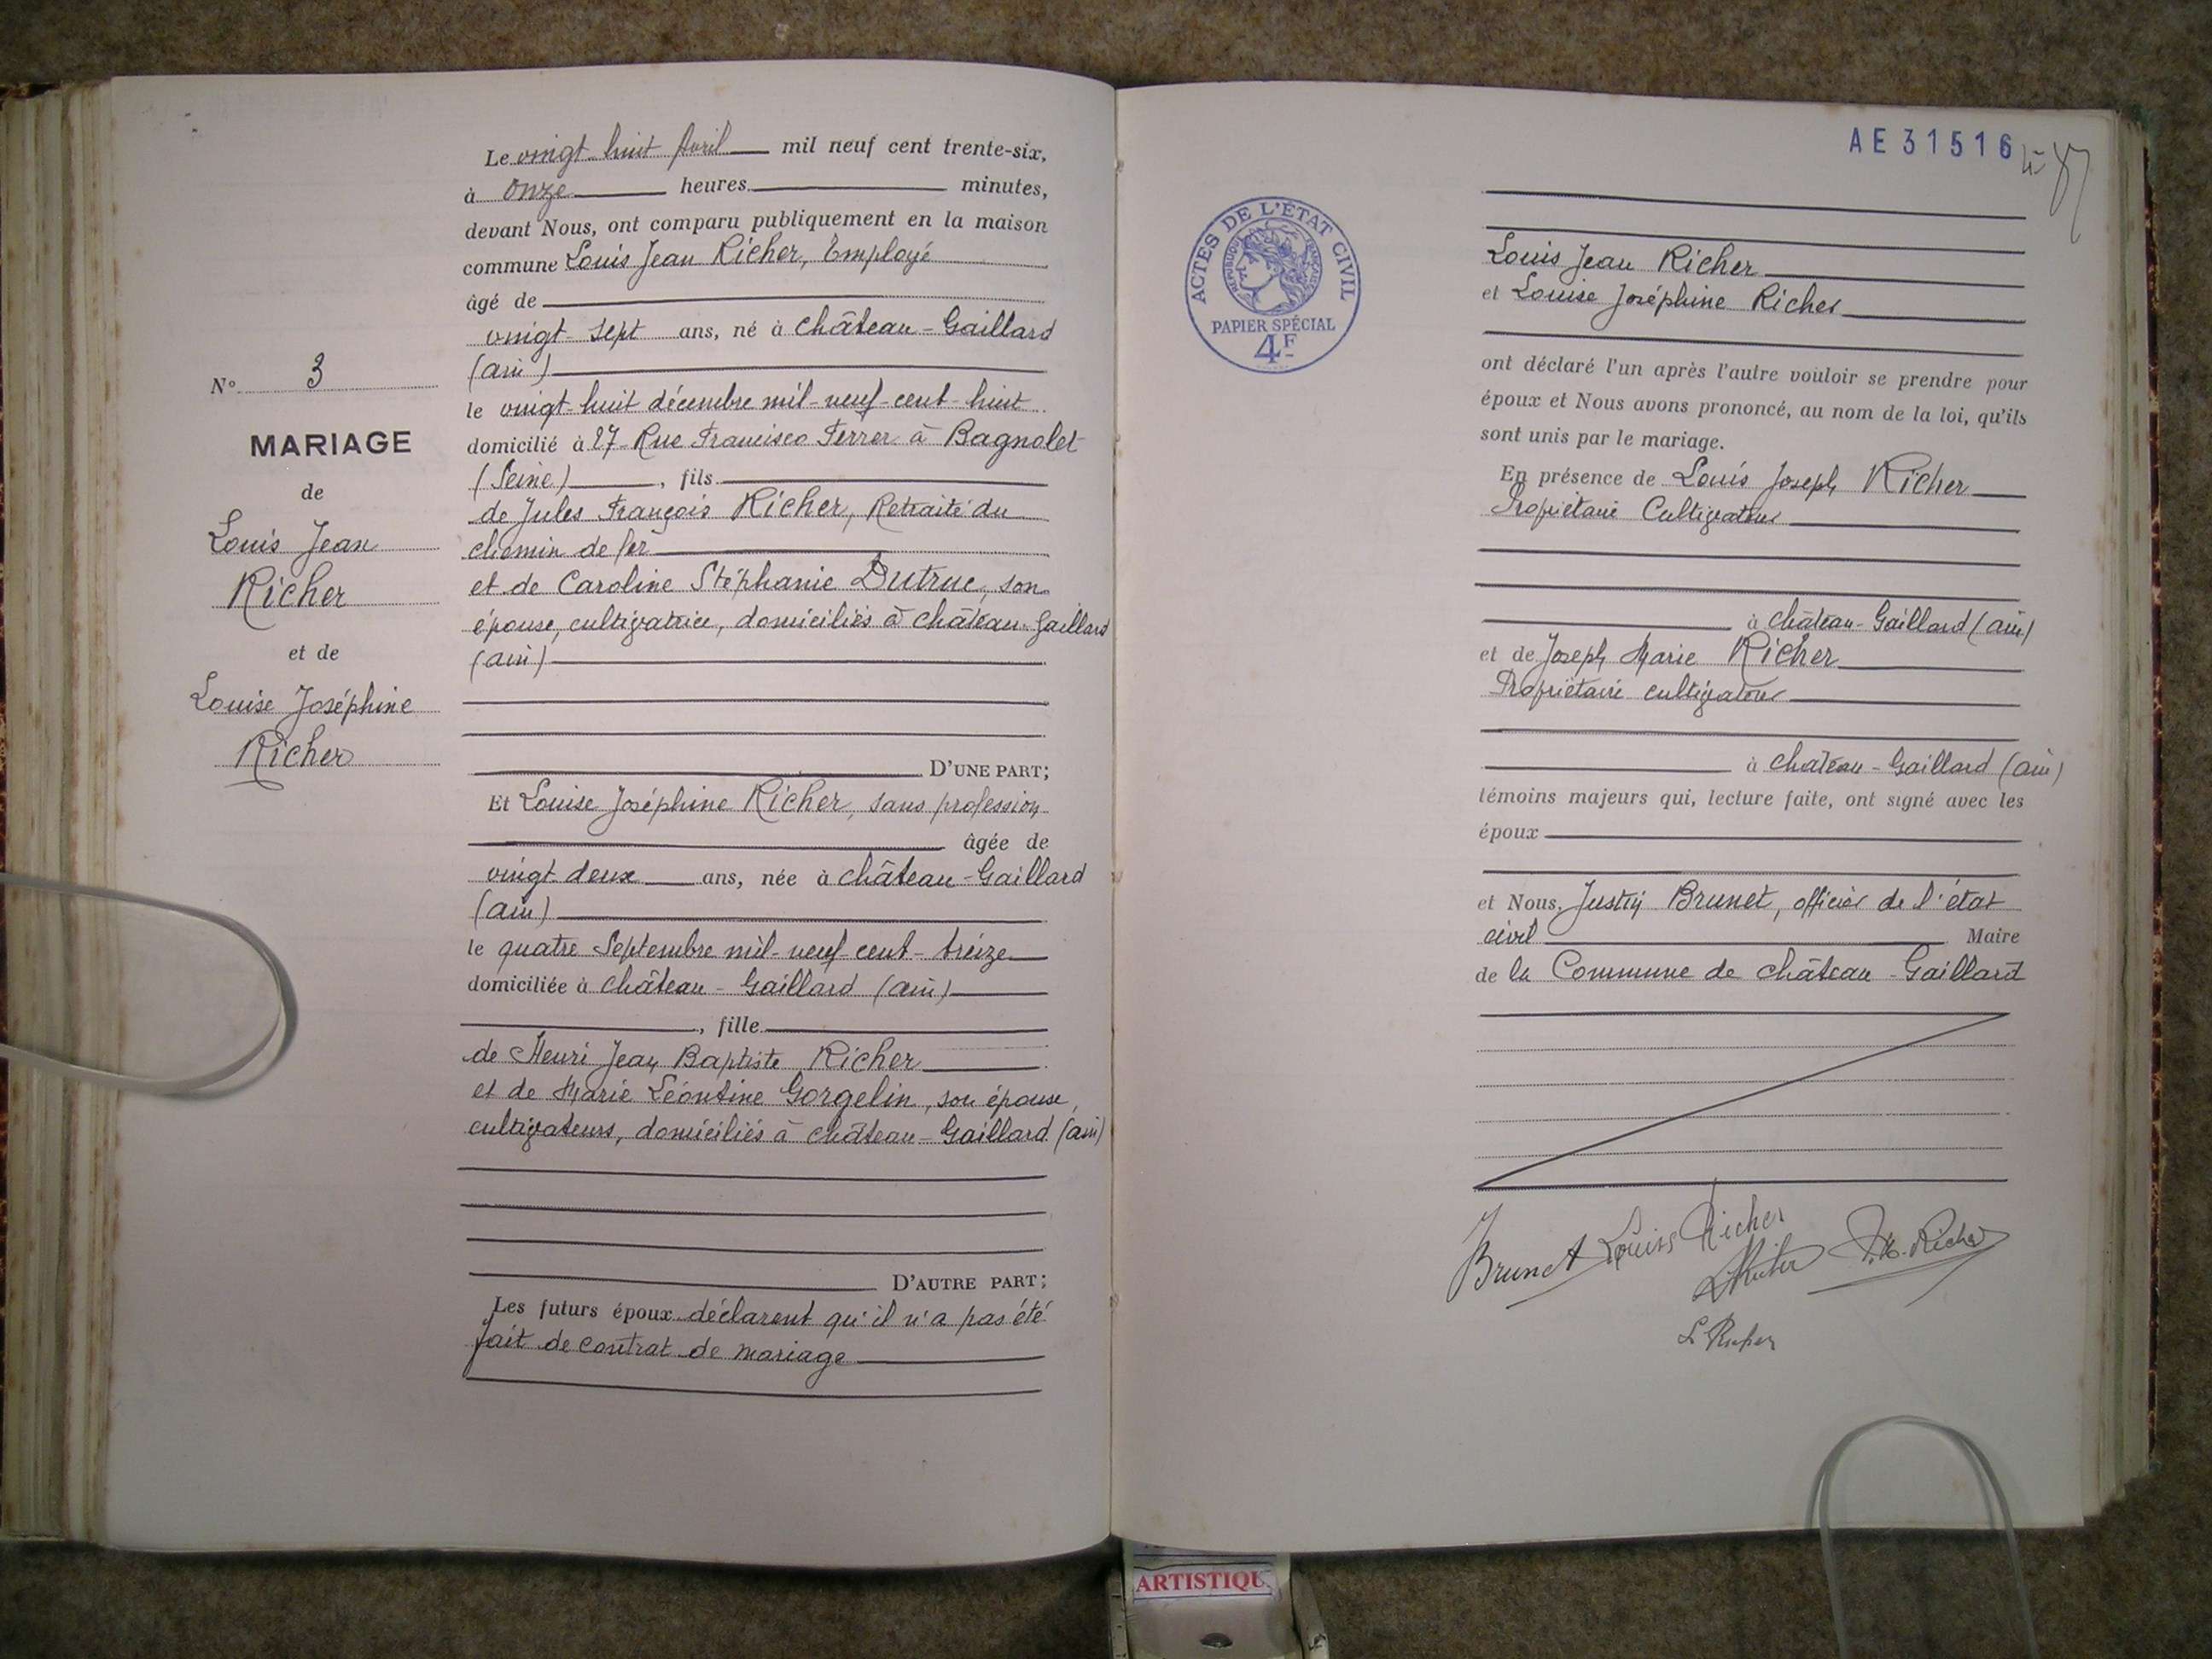 N° 3
MARIAGE
de
Louis Jean
Richer
et de
Louise Joséphine
Richer
Le vingt huit Avril mil neuf cent trente-six,
à onze heures minutes,
devant Nous, ont comparu publiquement en la maison
commune Louis Jean Richer, Employé
âgé de
vingt-sept ans, né à château-Gaillard
(ain)
le vingt-huit décembre mil-neuf-cent-huit
domicilié à 27 Rue Francisco Ferrer à Bagnolet
(Seine), fils
de Jules François Richer, Retraité du
chemin de fer
et de Caroline Stéphanie Dutruc, son
épouse, cultivatrice, domiciliés à château-Gaillard
(ain)
D'UNE PART;
Et Louise Joséphine Richer, sans profession
âgée de
vingt deux ans, née à château-Gaillard
(ain)
le quatre Septembre mil-neuf-cent-treize
domiciliée à château-Gaillard (ain)
, fille
de Henri Jean Baptiste Richer
et de Marie Léontine Gorgelin, son épouse,
cultivateurs, domiciliés à château-Gaillard (ain)
D'AUTRE PART;
Les futurs époux déclarent qu'il n'a pas été
fait de contrat de mariage
AE31516
ACTES DE L'ÉTAT CIVIL
RÉPUBLIQUE FRANÇAISE
PAPIER SPÉCIAL
4F
Louis Jean Richer
et Louise Joséphine Richer
ont déclaré l'un après l'autre vouloir se prendre pour
époux et Nous avons prononcé, au nom de la loi, qu'ils
sont unis par le mariage.
En présence de Louis Joseph Richer
Propriétaire Cultivateur
à château-Gaillard (ain)
et de Joseph Marie Richer
Propriétaire cultivateur
à château-Gaillard (ain)
témoins majeurs qui, lecture faite, ont signé avec les
époux
et Nous, Justin Brunet, officier de l'état
civil Maire
de la Commune de château-Gaillard
Brunet Louis Richer
L Richer J.M. Richer
L Richer
ARTISTIQU